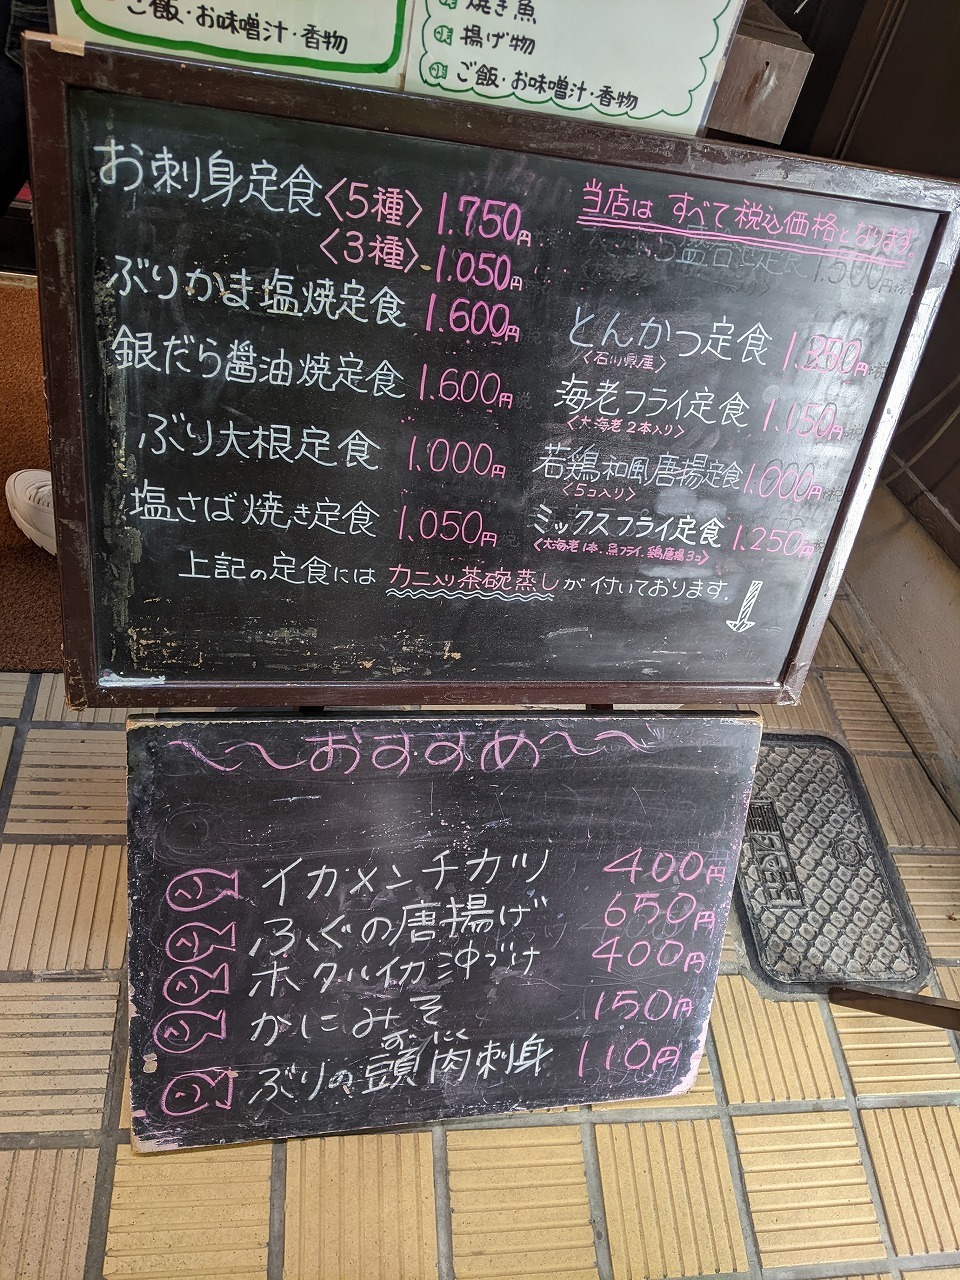 ご飯・お味噌汁・香物
焼き魚
揚げ物
ご飯・お味噌汁・香物
お刺身定食〈5種〉1.750円
〈3種〉1.050円
ぶりかま塩焼定食 1.600円
銀だら醤油焼定食 1.600円
ぶり大根定食 1.000円
塩さば焼き定食 1.050円
当店は すべて税込価格となります
とんかつ定食
〈石川県産〉
海老フライ定食 1.150円
〈大海老2本入り〉
若鶏和風唐揚定食 1.000円
〈5コ入り〉
ミックスフライ定食 1.250円
〈大海老1本、魚フライ、鶏唐揚3コ〉
上記の定食には カニ入り茶碗蒸しが付いております。
〜〜おすすめ〜〜
イカメンチカツ 400円
ふぐの唐揚げ 650円
ホタルイカ沖づけ 400円
かにみそ 150円
ずにく
ぶりの頭肉刺身 110円